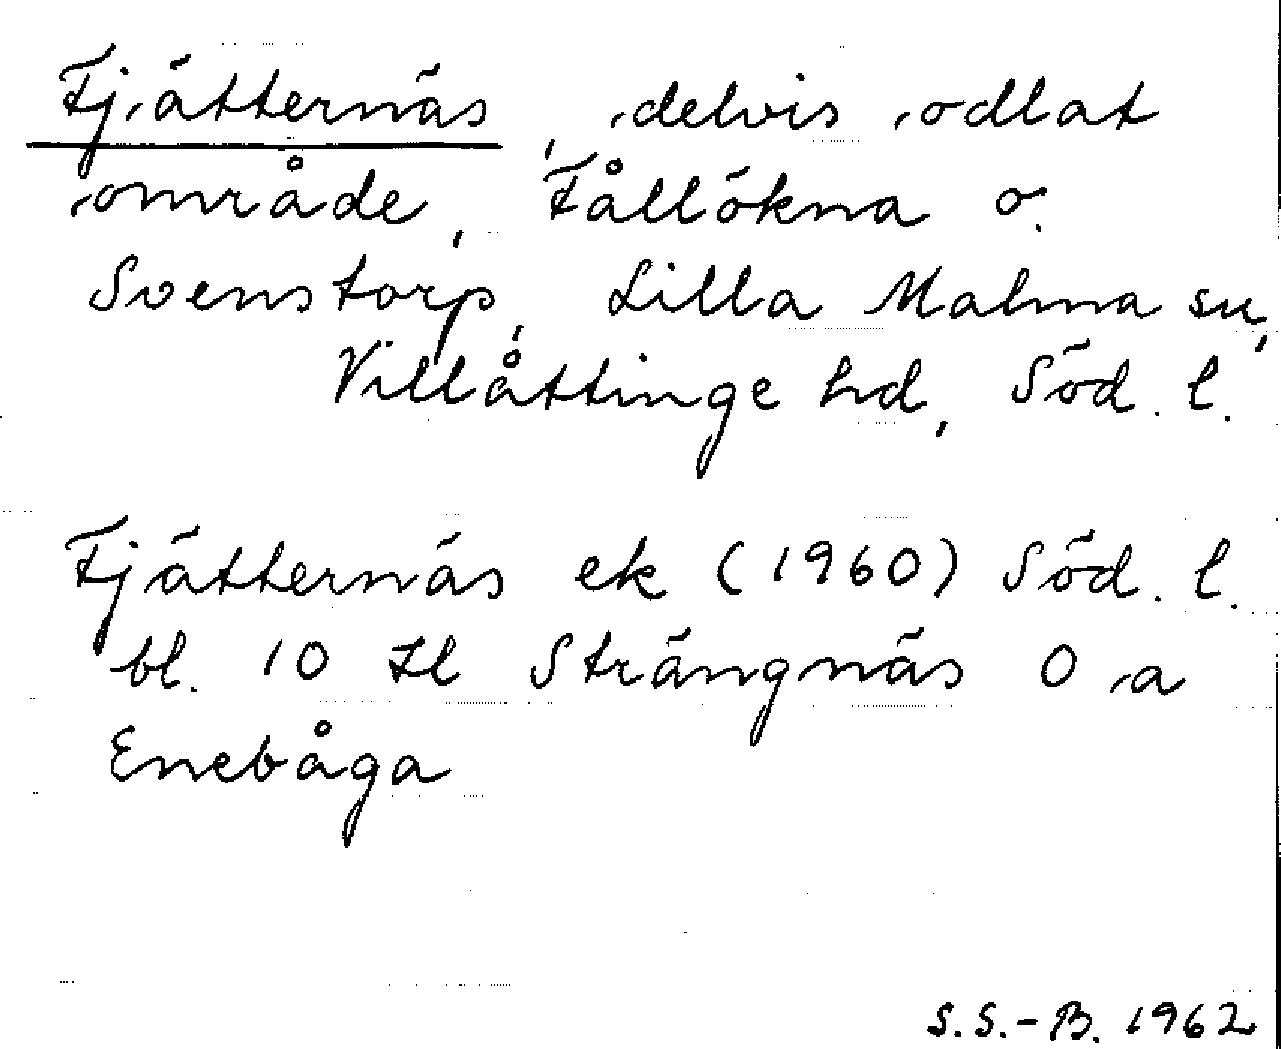 Fjätternäs, delvis odlat
område, Fållökna o.
Svenstorp, Lilla Malma sn,
Villåttinge hd, Söd. l.
Fjätternäs ek (1960) Söd. l.
bl. 10 tl Strängnäs O a
Enebåga
S.S.-B. 1962